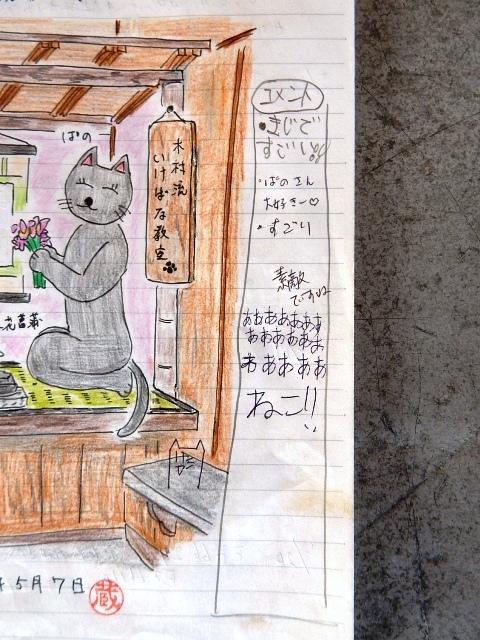 ぱの
木村流
いけばな教室
花菖蒲
年5月7日
蔵
コメント
・まじで
すごいっす
・ぱのさん
大好きー♡
・すごり
素敵
ですね
ああああああ
ああああああ
ああああああ
ねこ!!